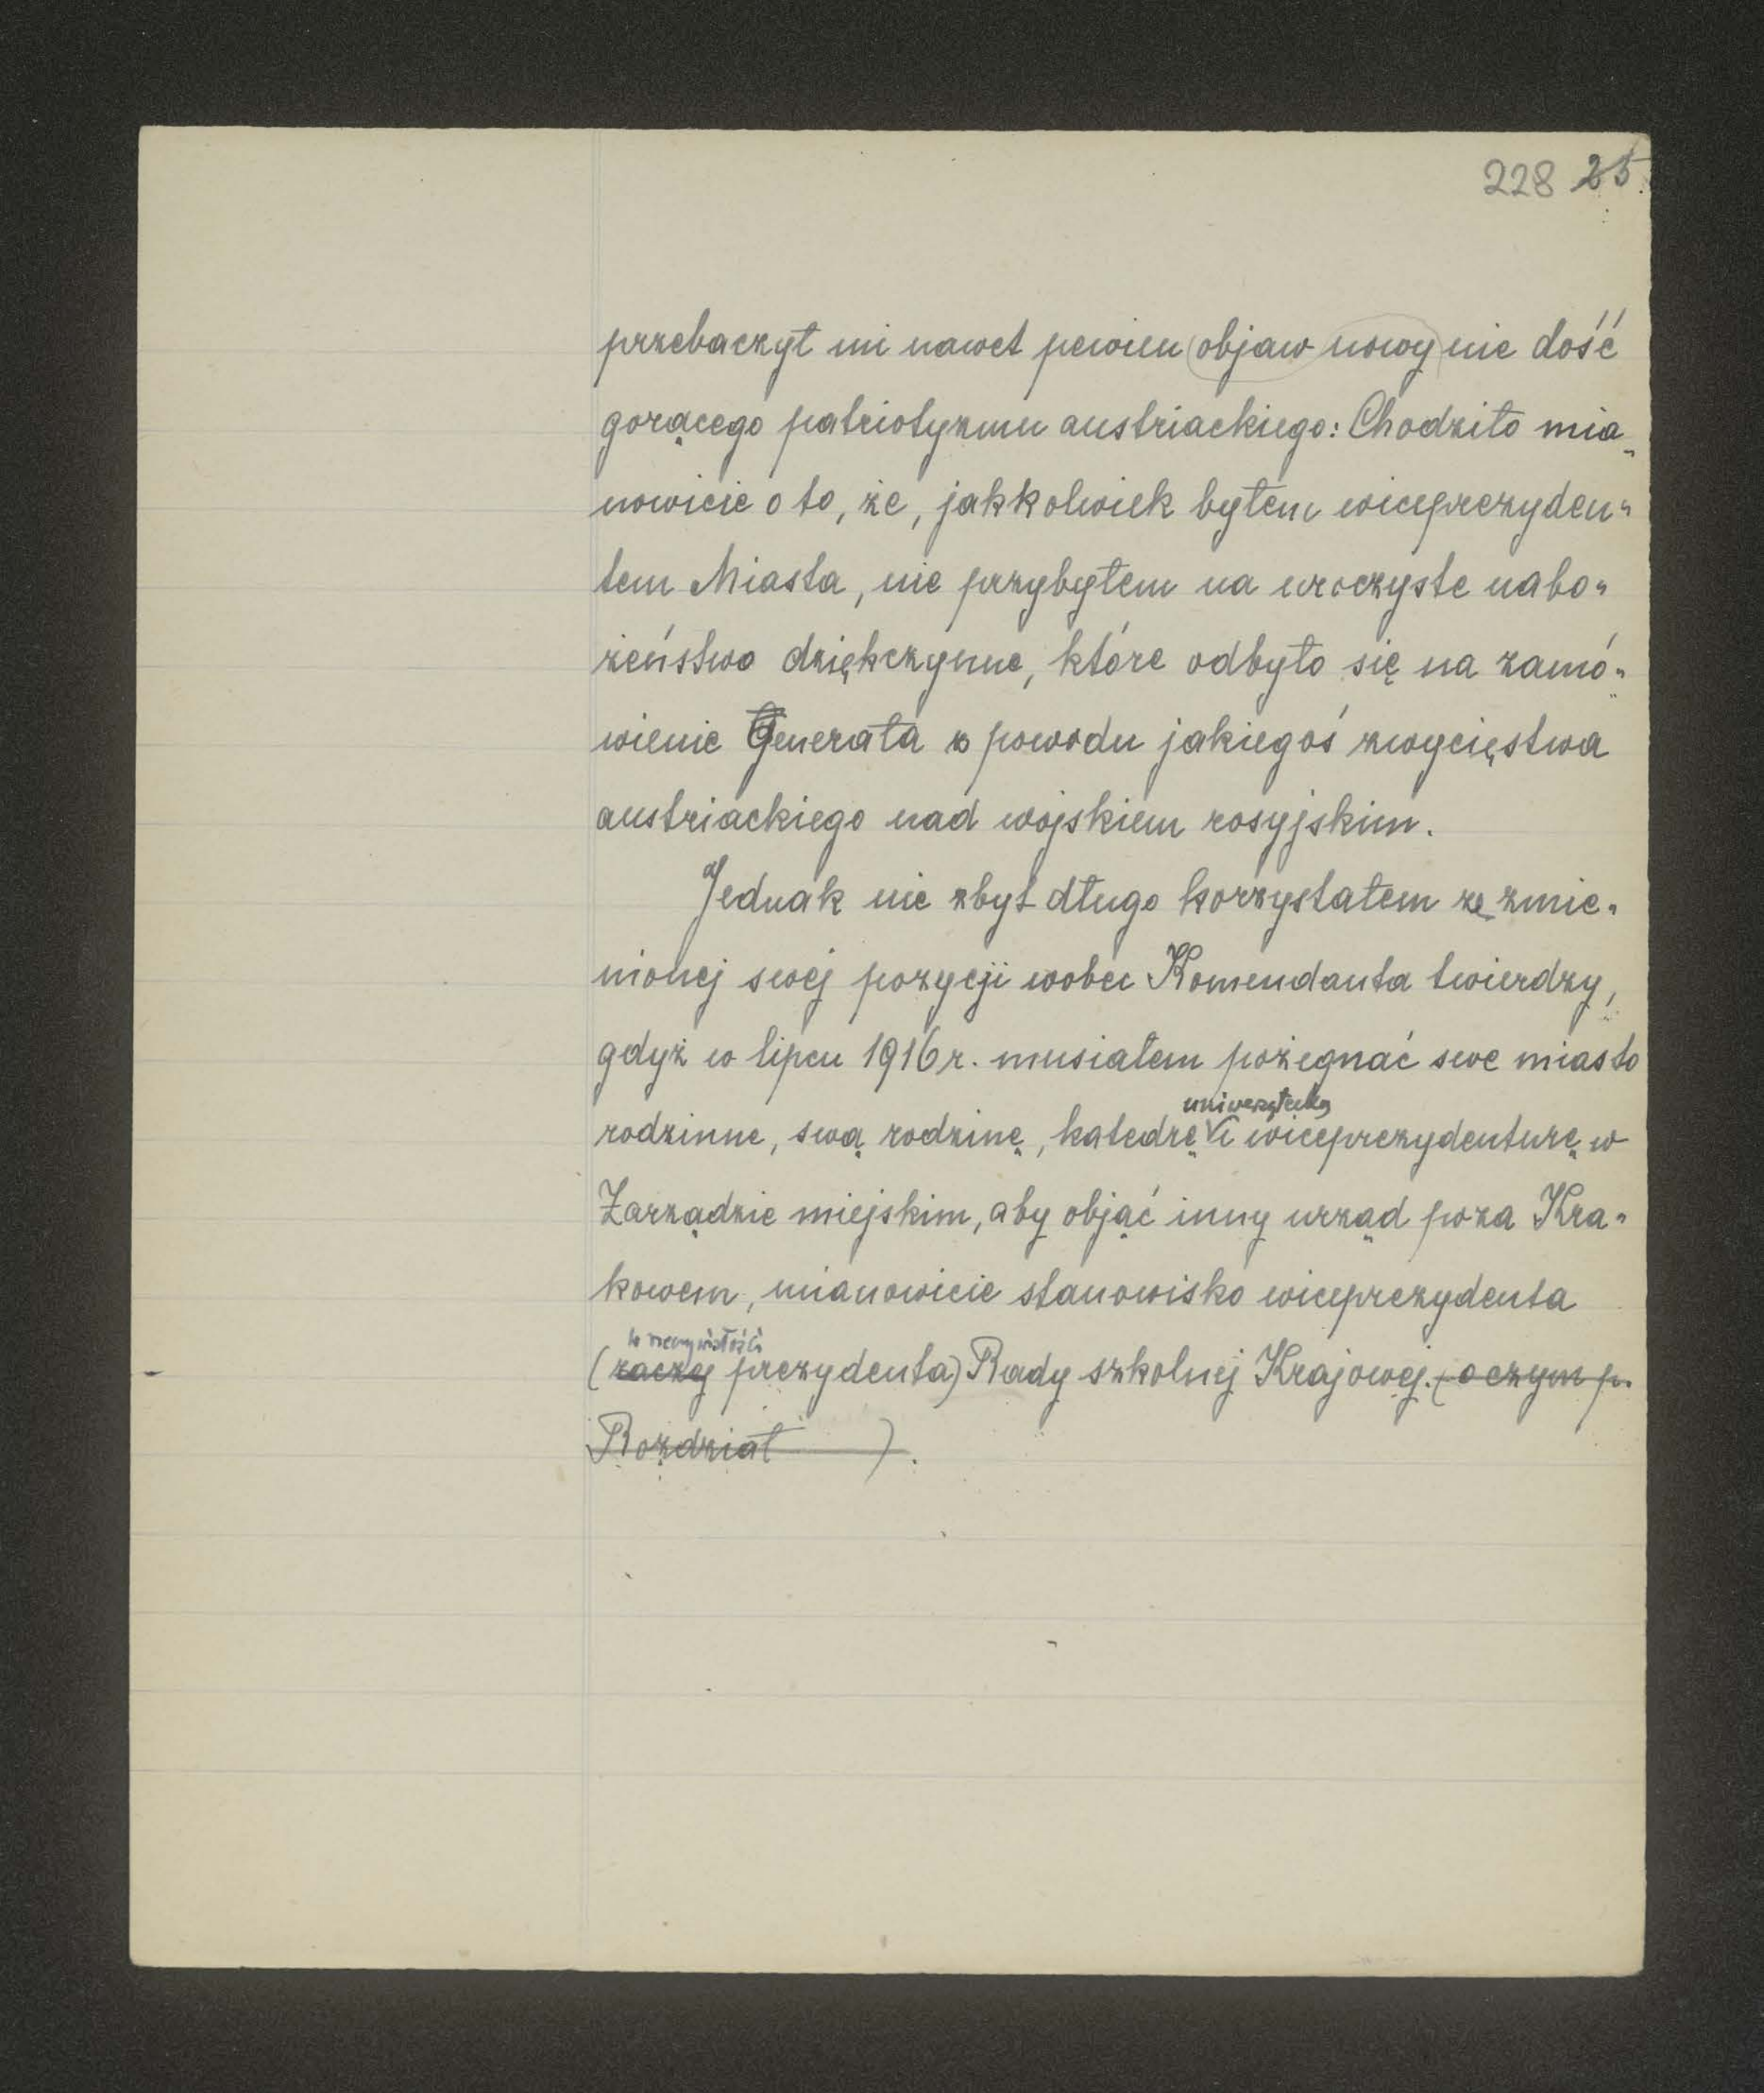 228 25.
przebaczył mi nawet pewien (objaw nowy) nie dość
gorącego patriotyzmu austriackiego: Chodziło mia„
nowicie o to, że, jakkolwiek byłem wiceprezyden„
tem Miasta, nie przybyłem na uroczyste nabo„
żeństwo dziękczynne, które odbyło się na zamó„
wienie Generała z powodu jakiegoś zwycięstwa
austriackiego nad wojskiem rosyjskim.
Jednak nie zbyt długo korzystałem ze zmie„
nionej swej pozycji wobec Komendanta twierdzy,
gdyż w lipcu 1916 r. musiałem pożegnać swe miasto
uniwersytecką
rodzinne, swą rodzinę, katedrę i wiceprezydenturę w
Zarządzie miejskim, aby objąć inny urząd poza Kra„
kowem, mianowicie stanowisko wiceprezydenta
w rzeczywistości
(raczej prezydenta) Rady szkolnej Krajowej. (o czym p.
Rozdział ).